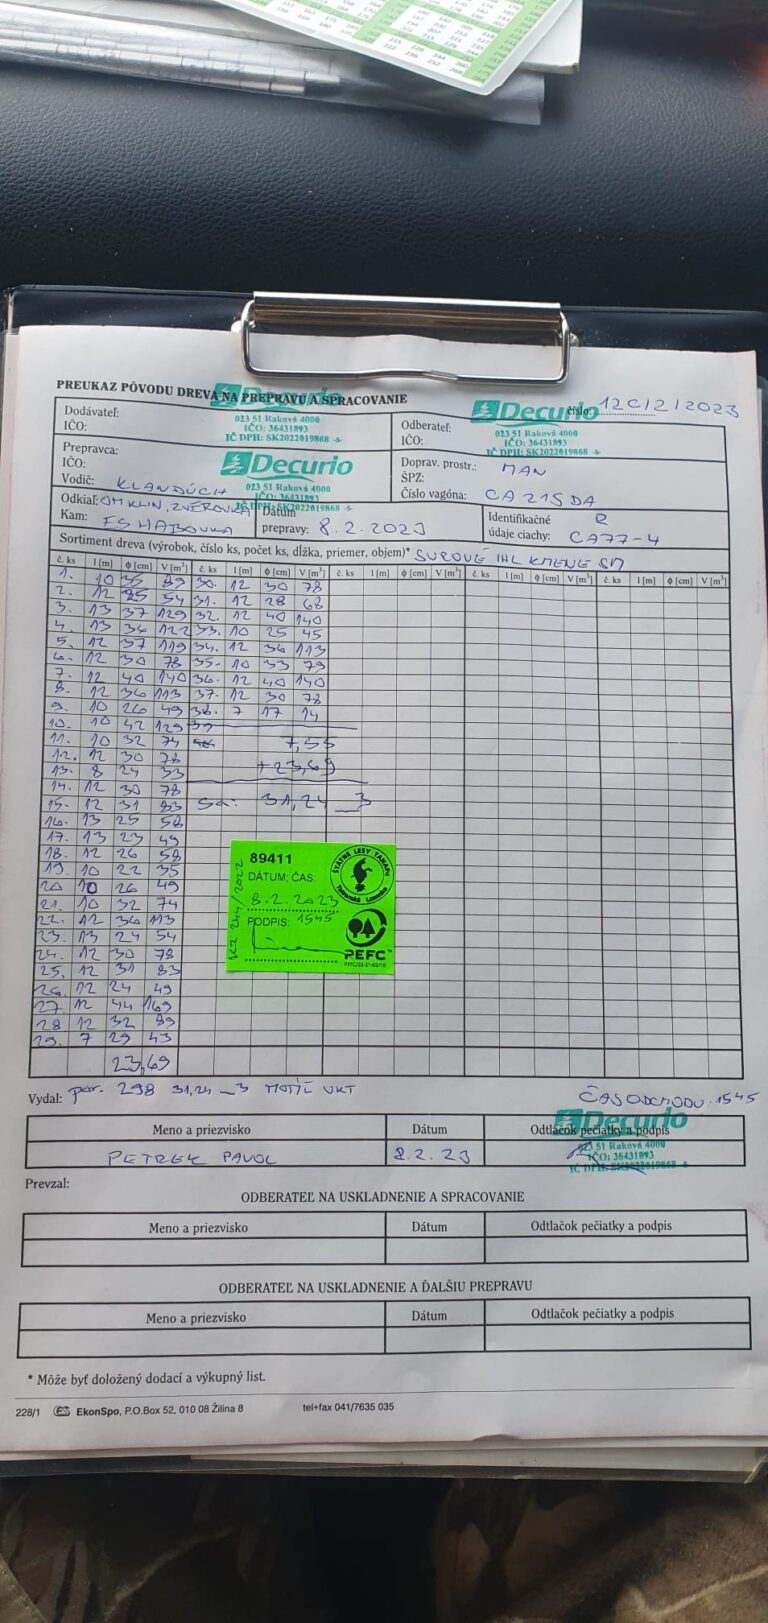 PREUKAZ PÔVODU DREVA NA PREPRAVU A SPRACOVANIE
číslo: 12C/2/2023
Dodávateľ:
IČO:
Decurio
023 51 Raková 4000
IČO: 36431893
IČ DPH: SK2022019868 -5-
Odberateľ:
IČO:
Decurio
023 51 Raková 4000
IČO: 36431893
IČ DPH: SK2022019868 -5-
Prepravca:
IČO:
Vodič: KLANDÚCH
Decurio
023 51 Raková 4000
IČO: 36431893
IČ DPH: SK2022019868 -5-
Doprav. prostr.: MAN
ŠPZ:
Číslo vagóna: CA 215DA
Odkiaľ: OM KLIN, ZVEROVKA
Kam: ES HABOVKA
Dátum
prepravy: 8.2.2023
Identifikačné R
údaje ciachy: CA77-4
Sortiment dreva (výrobok, číslo ks, počet ks, dĺžka, priemer, objem)* SUROVÉ IHL KMENE SM
č. ks l [m] ϕ [cm] V [m³] č. ks l [m] ϕ [cm] V [m³] č. ks l [m] ϕ [cm] V [m³] č. ks l [m] ϕ [cm] V [m³] č. ks l [m] ϕ [cm] V [m³]
1. 10 35 89 30. 12 30 78
2. 12 25 54 31. 12 28 68
3. 13 37 129 32. 12 40 140
4. 13 36 122 33. 10 25 45
5. 12 37 119 34. 12 36 113
6. 12 30 78 35. 10 33 79
7. 12 40 140 36. 12 40 140
8. 12 36 113 37. 12 30 78
9. 10 26 49 38. 7 17 14
10. 10 42 129 39
11. 10 32 74 7,55
12. 12 30 78 +23,69
13. 8 24 33
14. 12 30 78
15. 12 31 83 Sa: 31,24 _3
16. 13 25 58
17. 13 23 49
18. 12 26 58
19. 10 22 35
20 10 26 49
21. 10 32 74
22. 12 36 113
23. 13 24 54
24. 12 30 78
25. 12 31 83
26. 12 24 49
27 12 44 169
28 12 32 89
29. 7 29 43
23,69
89411
DÁTUM, ČAS:
8.2.2023
PODPIS: 1545
KZ 244/2022
ŠTÁTNE LESY TANAPU
Tatranská Lomnica
PEFC™
Vydal: por. 298 31,24 _3 MOTÍČ VKT
ČAS ODCHODU: 1545
Meno a priezvisko Dátum Odtlačok pečiatky a podpis
PETREK PAVOL 8.2.23
Decurio
023 51 Raková 4000
IČO: 36431893
IČ DPH: SK2022019868 -5-
Prevzal:
ODBERATEĽ NA USKLADNENIE A SPRACOVANIE
Meno a priezvisko Dátum Odtlačok pečiatky a podpis
ODBERATEĽ NA USKLADNENIE A ĎALŠIU PREPRAVU
Meno a priezvisko Dátum Odtlačok pečiatky a podpis
* Môže byť doložený dodací a výkupný list.
228/1 ES EkonSpo, P.O.Box 52, 010 08 Žilina 8 tel+fax 041/7635 035